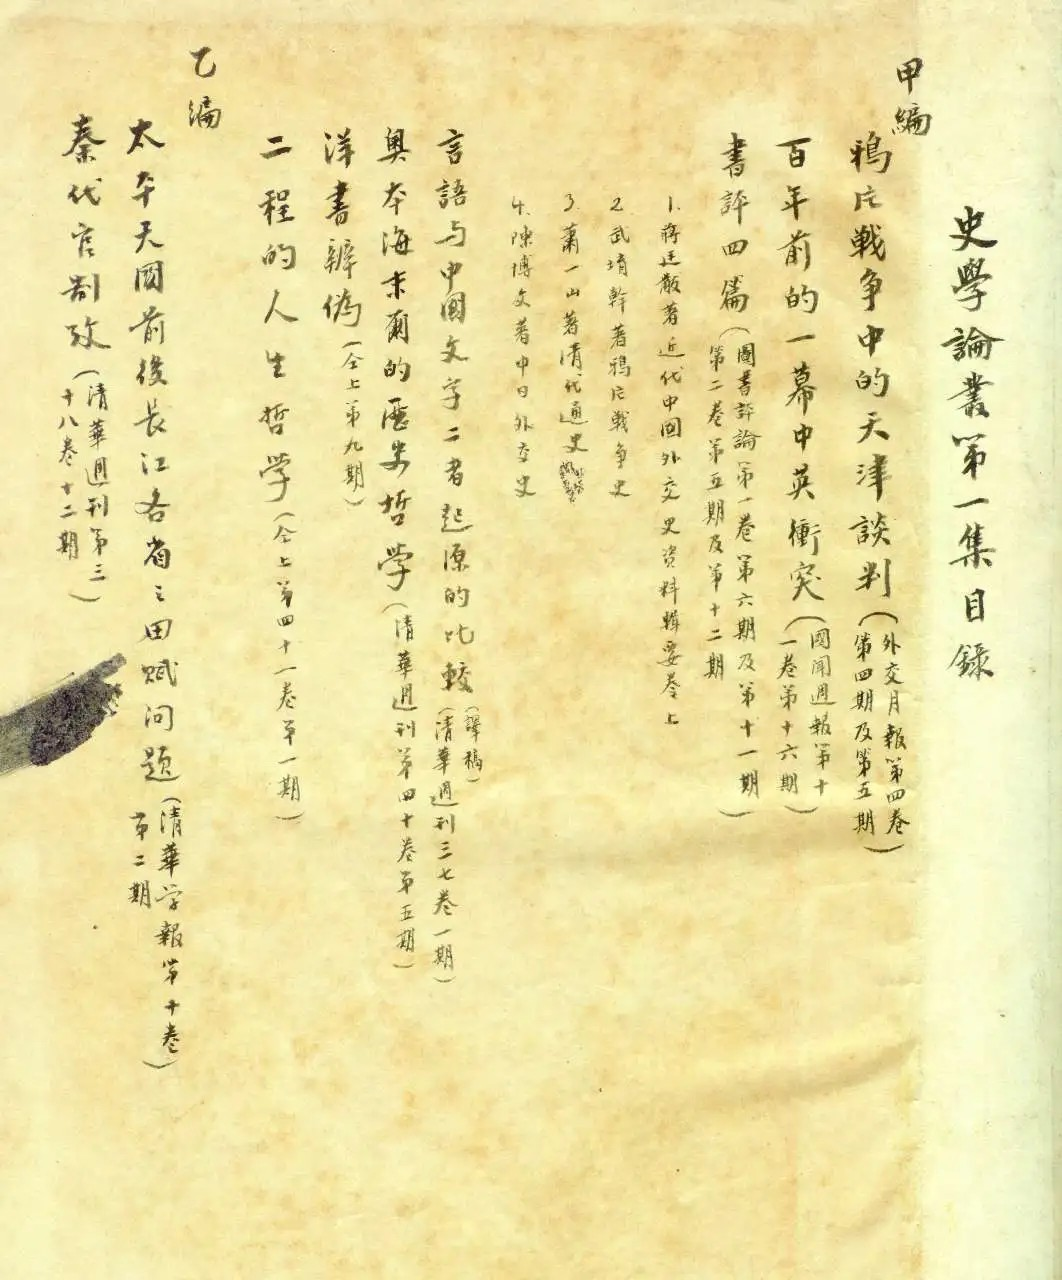 史學論叢第一集目錄
甲編
鴉片戰争中的天津談判(外交月報第四卷
第四期及第五期)
百年前的一幕中英衝突(國聞週報第十
一卷第十六期)
書評四篇(圖書評論第一卷第六期及第十一期
第二卷第五期及第十二期)
1.蔣廷黻著近代中国外交史资料輯要卷上
2.武堉幹著鴉片戰争史
3.蕭一山著清代通史
4.陳博文著中日外交史
言語与中國文字二者起源的比較(譯稿)
(清華週刊三七卷一期)
奥本海末爾的歷史哲學(清華週刊第四十卷第五期)
洋書辨偽(仝上第九期)
二程的人生哲学(仝上第四十一卷第一期)
乙編
太平天國前後長江各省之田赋问题(清華学報第十卷
第二期)
秦代官制攷(清華週刊第三
十八卷十二期)